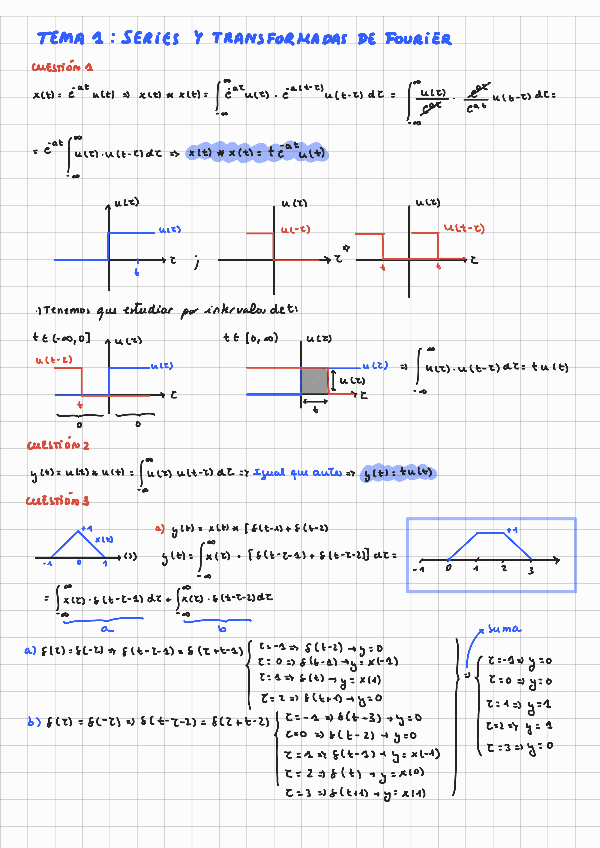 TEMA 1: SERIES Y TRANSFORMADAS DE FOURIER
CUESTIÓN 1
x(t) = e^-at u(t) ⇒ x(t) * x(t) = ∫_-∞^∞ e^-aτ u(τ) · e^-a(t-τ) u(t-τ) dτ = ∫_-∞^∞ u(τ)/e^aτ · e^aτ/e^at u(t-τ) dτ =
= e^-at ∫_-∞^∞ u(τ) · u(t-τ) dτ ⇒ x(t) * x(t) = t e^-at u(t)
u(τ) u(τ) τ t ; u(τ) u(-τ) τ ⇒ u(τ) u(t-τ) t t τ
·) Tenemos que estudiar por intervalos de t:
t ∈ (-∞, 0] u(τ) t ∈ [0, ∞) u(τ)
u(t-τ) u(τ) τ t 0 0 u(τ) u(τ) t τ ⇒ ∫_-∞^∞ u(τ) · u(t-τ) dτ = t u(t)
CUESTIÓN 2
y(t) = u(t) * u(t) = ∫_-∞^∞ u(τ) u(t-τ) dτ ⇒ Igual que antes ⇒ y(t) = t u(t)
CUESTIÓN 3
+1 x(t) -1 0 1 (s)
a) y(t) = x(t) * [δ(t-1) + δ(t-2)
y(t) = ∫_-∞^∞ x(τ) · [δ(t-τ-1) + δ(t-τ-2)] dτ =
+1 -1 0 1 2 3
= ∫_-∞^∞ x(τ) · δ(t-τ-1) dτ + ∫_-∞^∞ x(τ) · δ(t-τ-2) dτ
a b
suma
a) δ(τ) = δ(-τ) ⇒ δ(t-τ-1) = δ(τ+t-1)
τ=-1 ⇒ δ(t-2) → y=0
τ=0 ⇒ δ(t-1) → y=x(-1)
τ=1 ⇒ δ(t) → y=x(1)
τ=2 ⇒ δ(t+1) → y=0
b) δ(τ) = δ(-τ) ⇒ δ(t-τ-2) = δ(τ+t-2)
τ=-1 ⇒ δ(t-3) → y=0
τ=0 ⇒ δ(t-2) → y=0
τ=1 ⇒ δ(t-1) → y=x(-1)
τ=2 ⇒ δ(t) → y=x(0)
τ=3 ⇒ δ(t+1) → y=x(1)
⇒
τ=-1 ⇒ y=0
τ=0 ⇒ y=0
τ=1 ⇒ y=1
τ=2 ⇒ y=1
τ=3 ⇒ y=0